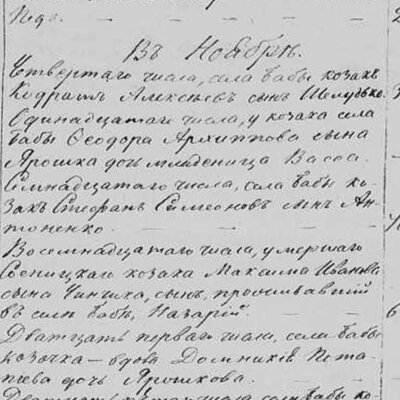 Въ Ноябрѣ.
Четвертаго числа, села Бабы козакъ
Кодратъ Алексѣевъ сынъ Шелудько.
Одинадцатаго числа, у козака села
Бабы Ѳеодора Архиппова сына
Ярошка дочь младеница Васса.
Семнадцатаго числа, села Бабы ко-
закъ Стефанъ Симеоновъ сынъ Ан-
тоненко.
Восемнадцатаго числа, умершаго
козака Максима Иванова
сына сынъ, проживавшій
въ селѣ Бабы, Назарій.
Двадцать перваго числа, села Бабы
козачка - вдова Домникія Пота-
піева дочь Ярошкова.
числа села Бабы ко-